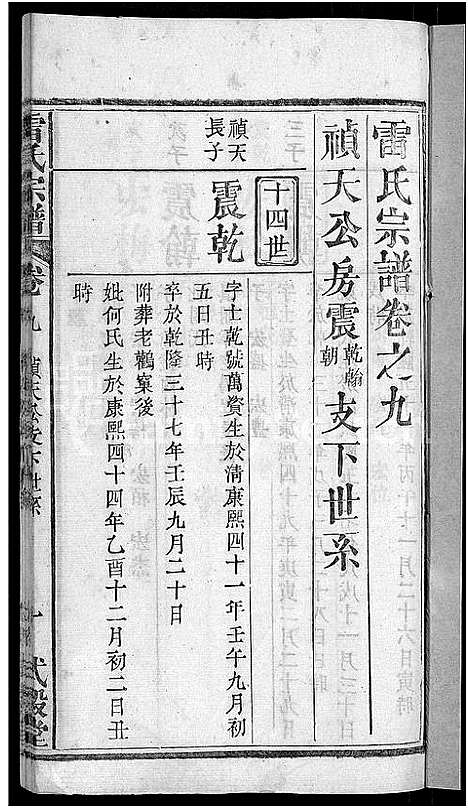 雷氏宗譜卷之九
禎天公房震乾翰朝支下世系
十四世
禎天
長子
震乾
字士乾號萬資生於清康熙四十一年壬午九月初
五日丑時
卒於乾隆三十七年壬辰九月二十日
附葬老鸛窠後
妣何氏生於康熙四十四年乙酉十二月初二日丑
時
雷氏宗譜
卷九
禎天公支下世系
一
式穀堂